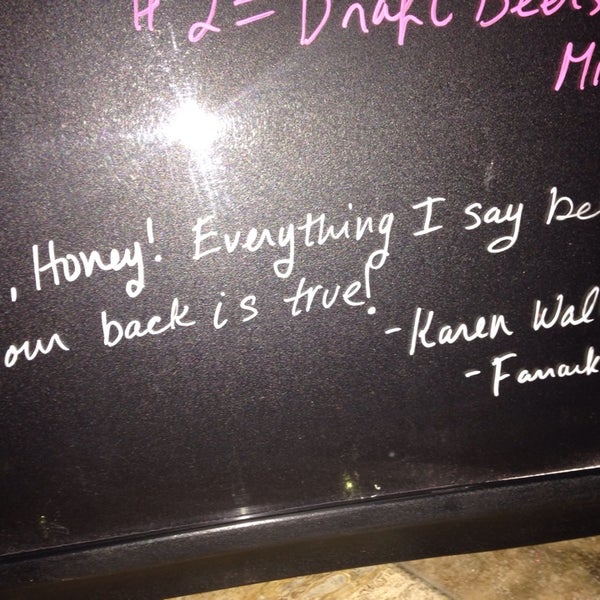 # 2 = Draft Beers
Mi
, Honey! Everything I say be
our back is true!
- Karen Wal
- Fanark